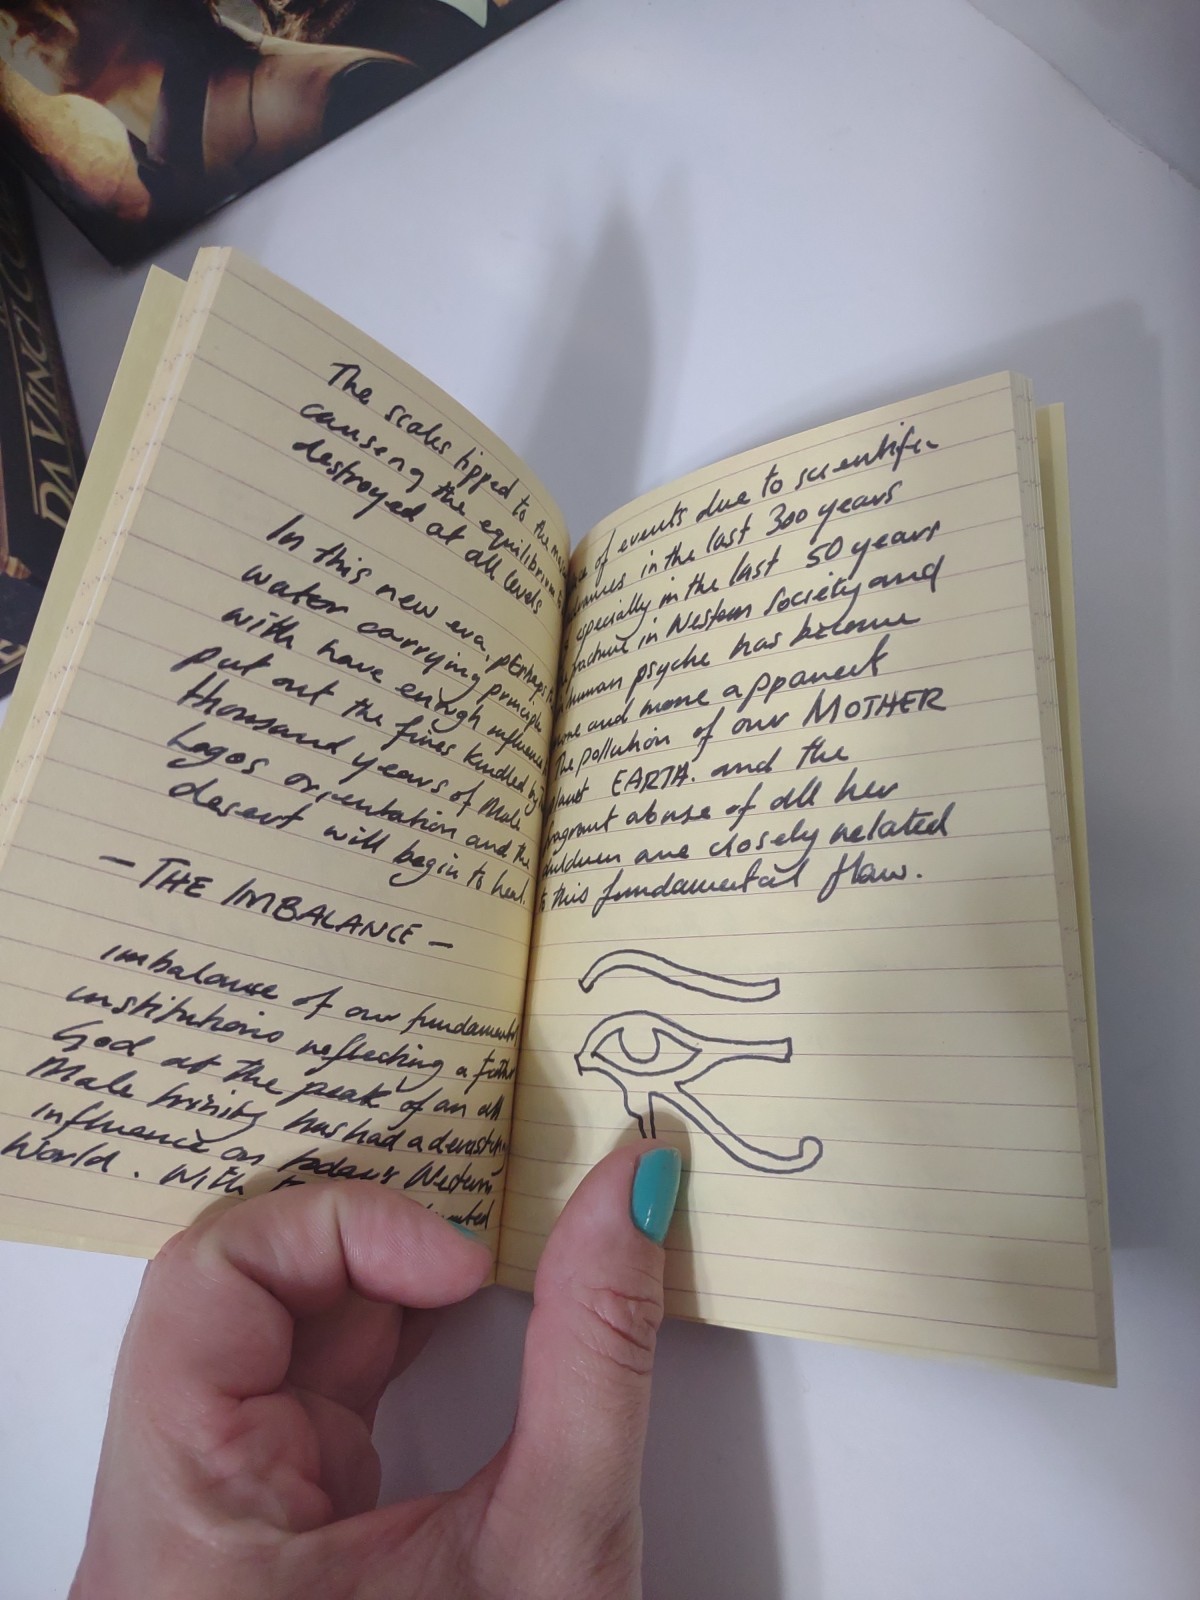 DA VINCI CO
The scales tipped to the
causeng the equilibrium
destroyed at all levels
In this new era, pErhaps
water carrying principle
with have enough influence
put out the fires kindled by
thousand years of Male
Logos orientation and the
desert will begin to heal.
- THE IMBALANCE -
imbalance of our fundamental
institutions reflecting a father
God at the peak of an all
Male trinity has had a
influence on today's Western
World. With
of events due to scientific
in the last 300 years
especially in the last 50 years
in Western Society and
human psyche has become
and more apparent
The pollution of our MOTHER
EARTH. and the
abuse of all her
children are closely related
to this fundamental flaw.